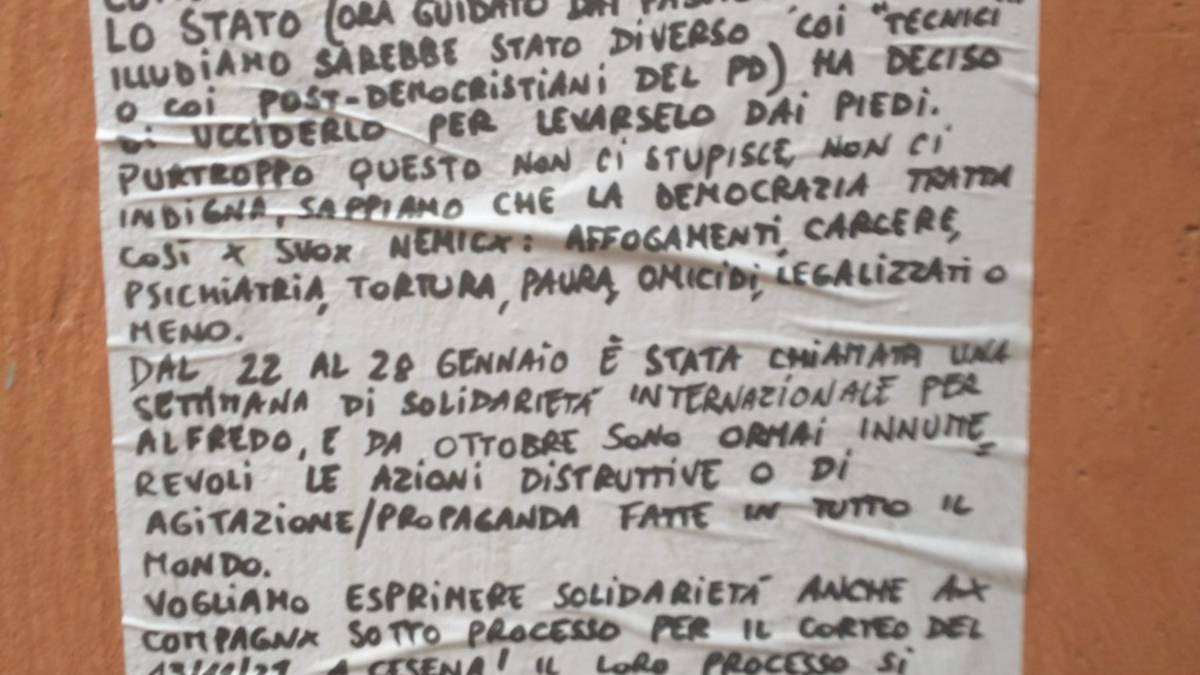 LO STATO (ORA GUIDATO DAI
ILLUDIAMO SAREBBE STATO DIVERSO COI "TECNICI
O COI POST-DEMOCRISTIANI DEL PD) HA DECISO
DI UCCIDERLO PER LEVARSELO DAI PIEDI.
PURTROPPO QUESTO NON CI STUPISCE, NON CI
INDIGNA, SAPPIAMO CHE LA DEMOCRAZIA TRATTA
COSÌ X SUOX NEMICX: AFFOGAMENTI, CARCERE,
PSICHIATRIA, TORTURA, PAURA, OMICIDI, LEGALIZZATI O
MENO.
DAL 22 AL 28 GENNAIO È STATA CHIAMATA UNA
SETTIMANA DI SOLIDARIETÁ INTERNAZIONALE PER
ALFREDO, E DA OTTOBRE SONO ORMAI INNUME_
REVOLI LE AZIONI DISTRUTTIVE O DI
AGITAZIONE/PROPAGANDA FATTE IN TUTTO IL
MONDO.
VOGLIAMO ESPRIMERE SOLIDARIETÁ ANCHE AX
COMPAGNX SOTTO PROCESSO PER IL CORTEO DEL
A CESENA! IL LORO PROCESSO SI